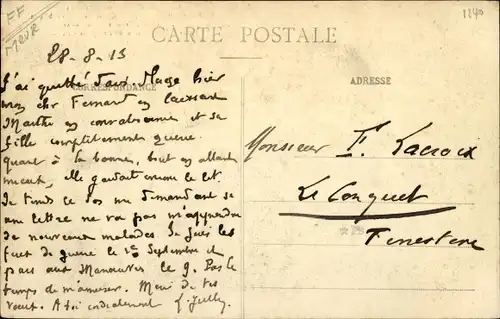 FF
MEUR
1240
CARTE POSTALE
CORRESPONDANCE
ADRESSE
28-8-13
J'ai quitté hier
mon cher Fernand en laissant
Marthe en convalescence et sa
fille complètement guérie.
quant à la bonne, tout en allant
mieux, elle gardait encore le lit.
Je tends le dos me demandant si
une lettre ne va pas m'apprendre
de nouveaux malades. Je suis les
de guerre le 1er Septembre et
pars aux Manœuvres le 9. Pas le
temps de m'amuser. Merci de tes
vœux. A toi cordialement
Monsieur F. Lacroix
Le Conquet
Finistère